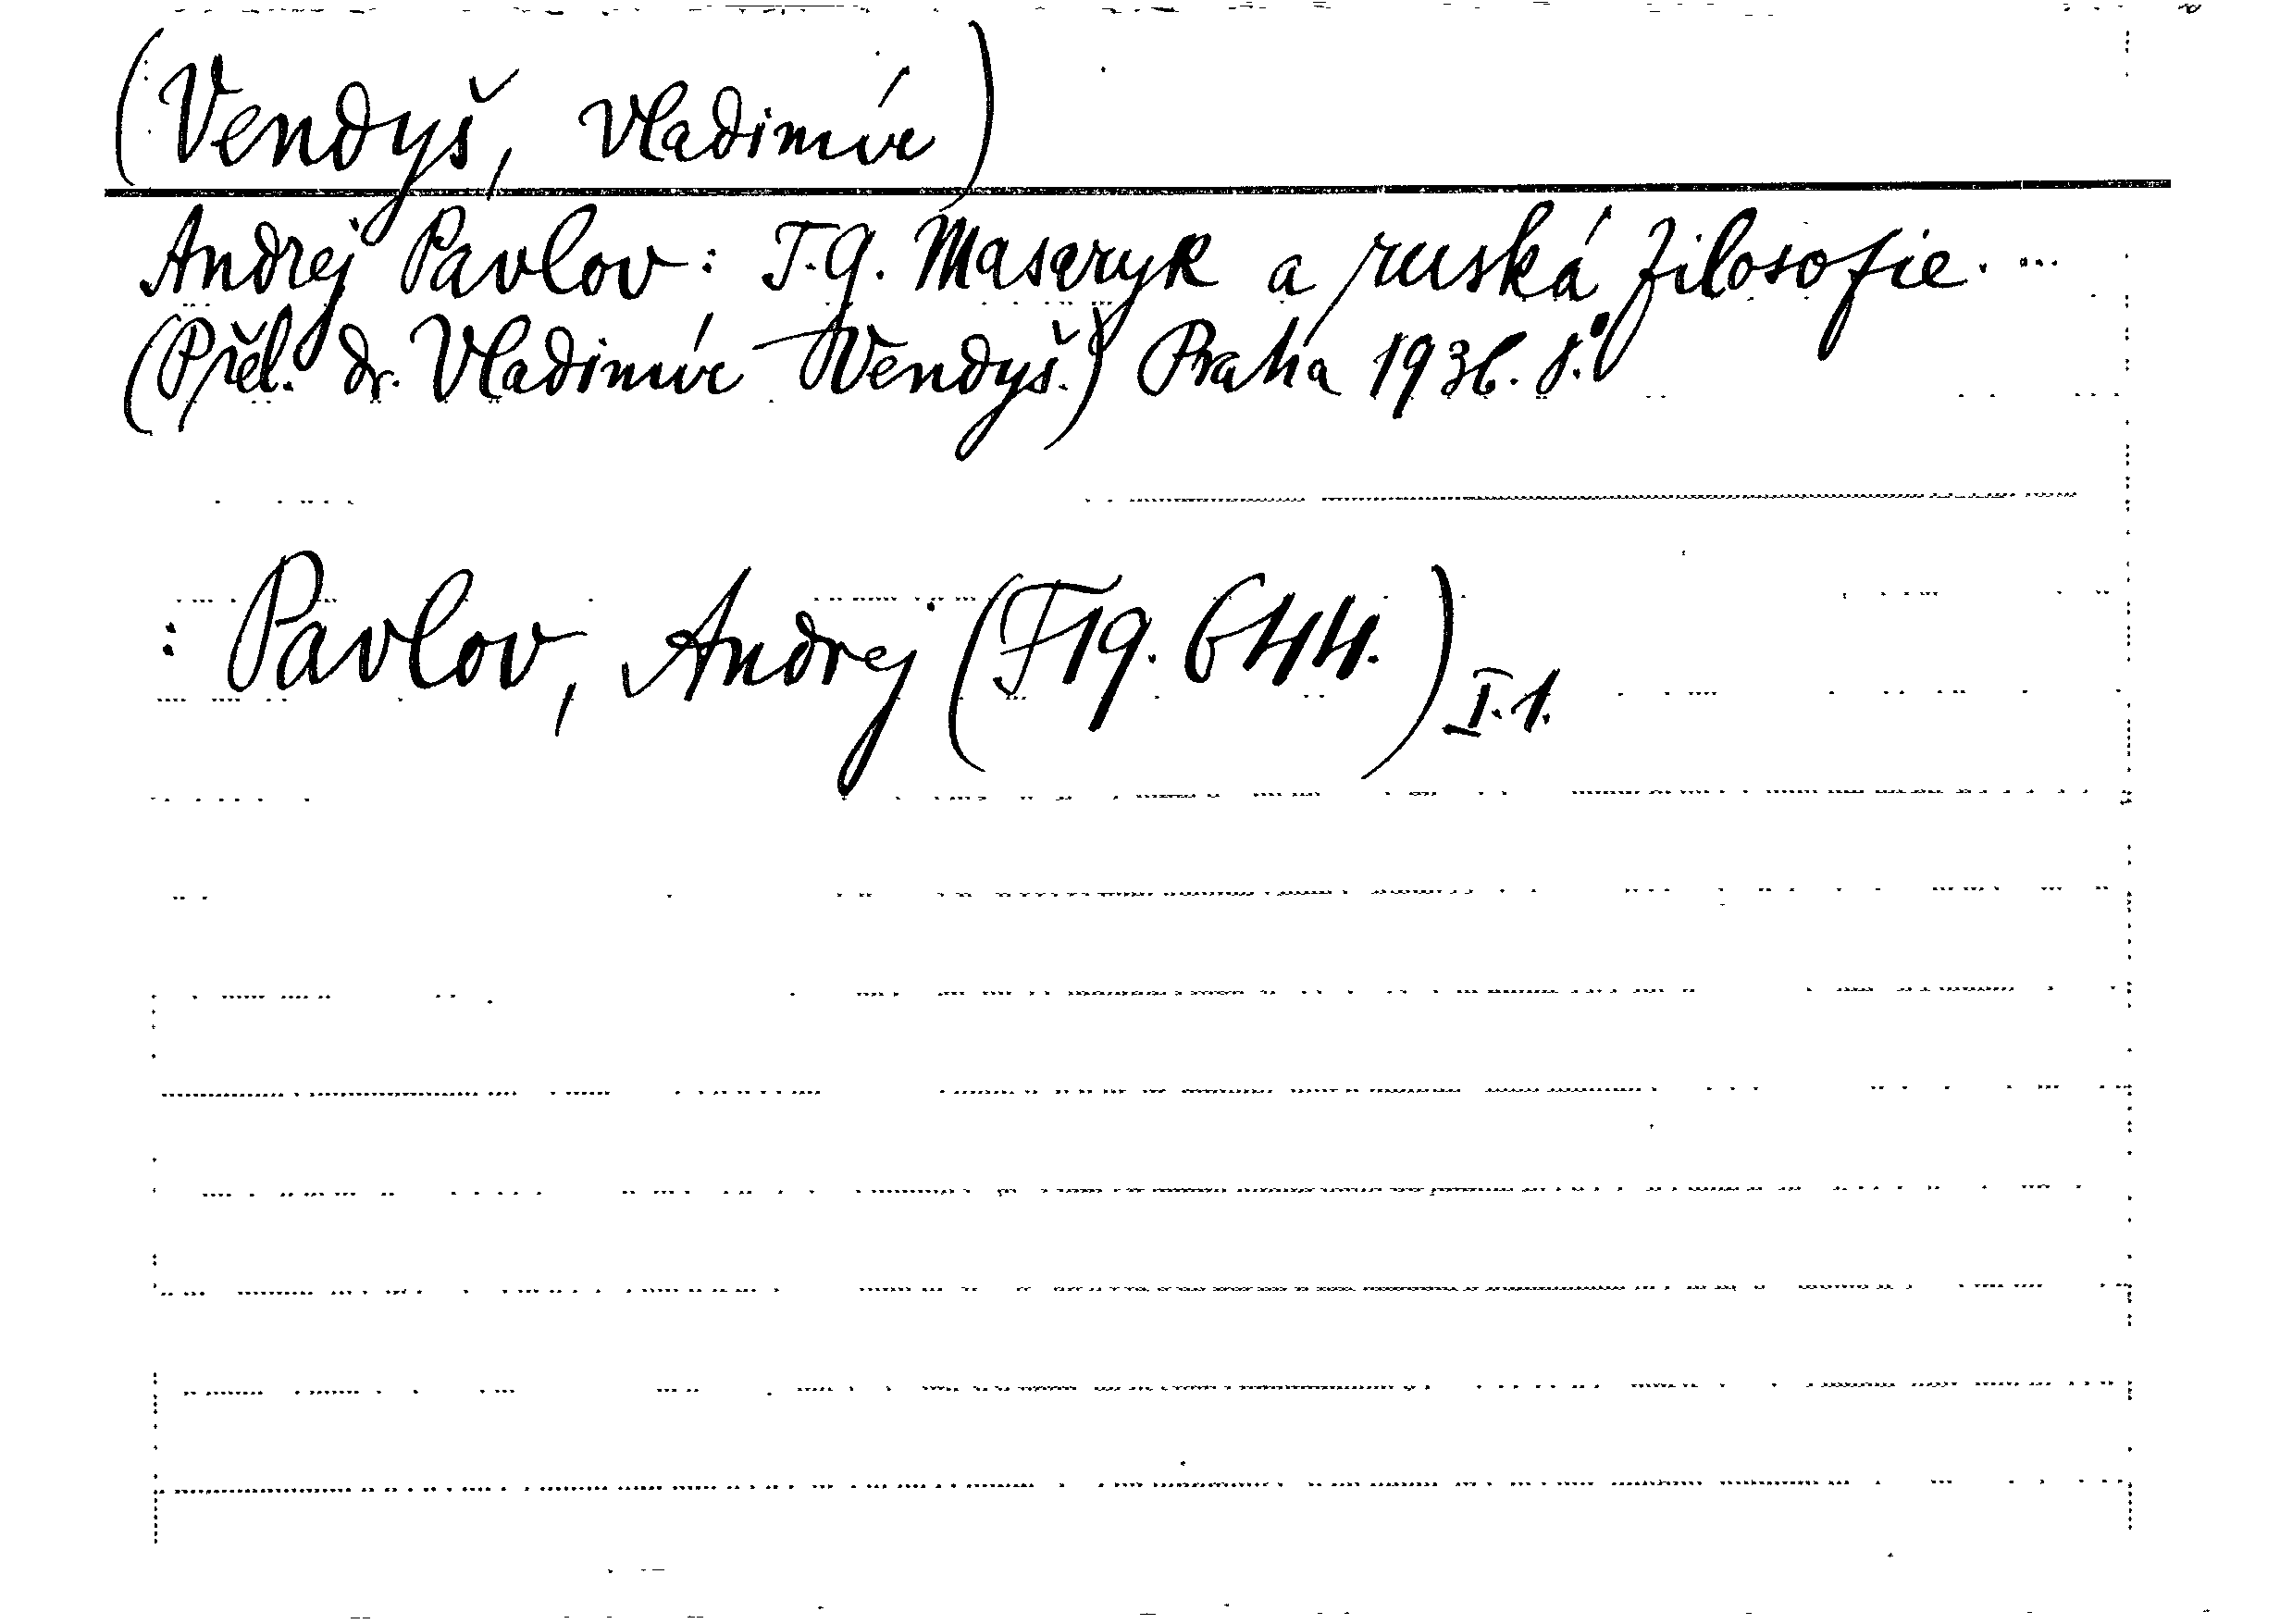 (Vendyš, Vladimír)
Andrej Pavlov: T.G. Masaryk a ruská filosofie. ...
(Přel. dr. Vladimír Vendyš.) Praha 1936. 8.°
: Pavlov, Andrej (F19.644.) I.1.